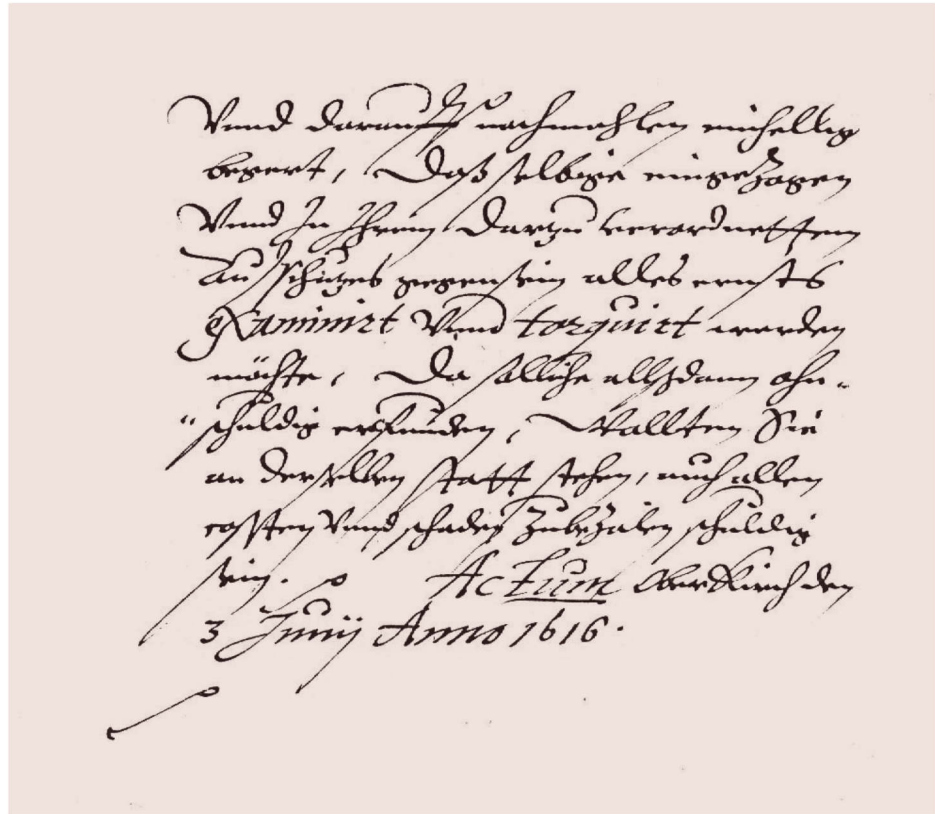 Vnnd darauff nachmahlen einhellig
begert, Daß selbige eingezogen
Vnnd In Ihrem Dartzu verordnettem
Ausschutzes gegensein alles ernsts
Examinirt Vnnd torquirt werden
möchte, Da solliche allßdann ohn-
schuldig erfunden, Wollten Sie
an derselben statt stehen, auch allen
costen Vnnd schaden Zubezalen schuldig
sein. Actum Oberkirch den
3 Junij Anno 1616.